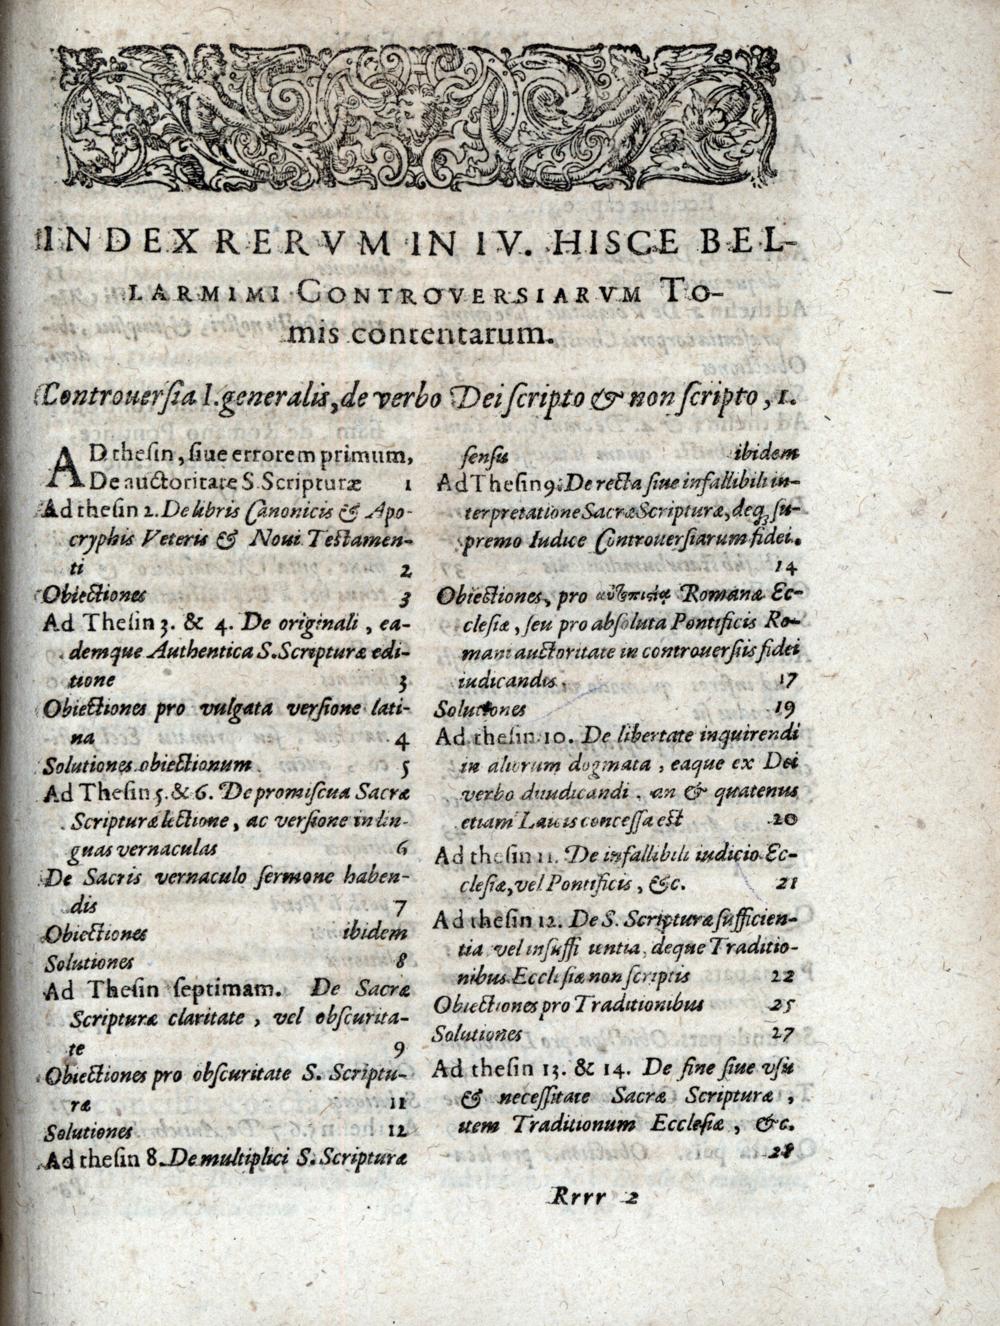 INDEX RERVM IN IV. HISCE BEL-
LARMIMI CONTROVERSIARVM TO-
mis contentarum.
Controuerſia I. generalis, de verbo Dei ſcripto & non ſcripto, 1.
AD theſin, ſiue errorem primum,
De auctoritate S. Scripturæ 1
Ad theſin 2. De libris Canonicis & Apo-
cryphis Veteris & Noui Teſtamen-
ti 2
Obiectiones 3
Ad Theſin 3. & 4. De originali, ea-
demque Authentica S. Scripturæ edi-
tione 3
Obiectiones pro vulgata verſione lati-
na 4
Solutiones obiectionum 5
Ad Theſin 5. & 6. De promiſcua Sacræ
Scripturæ lectione, ac verſione in lin-
guas vernaculas 6
De Sacris vernaculo ſermone haben-
dis 7
Obiectiones ibidem
Solutiones 8
Ad Theſin ſeptimam. De Sacræ
Scripturæ claritate, vel obſcurita-
te 9
Obiectiones pro obſcuritate S. Scriptu-
ræ 11
Solutiones 12
Ad theſin 8. De multiplici S. Scripturæ
ſenſu ibidem
Ad Theſin 9. De recta ſiue infallibili in-
terpretatione Sacræ Scripturæ, deq; ſu-
premo Iudice Controuerſiarum fidei.
14
Obiectiones, pro Romanæ Ec-
cleſiæ, ſeu pro abſoluta Pontificis Ro-
mani auctoritate in controuerſiis fidei
iudicandis, 17
Solutiones 19
Ad theſin 10. De libertate inquirendi
in aliorum dogmata, eaque ex Dei
verbo diiudicandi, an & quatenus
etiam Laicis conceſſa eſt 20
Ad theſin 11. De infallibili iudicio Ec-
cleſiæ, vel Pontificis, &c. 21
Ad theſin 12. De S. Scripturæ ſufficien-
tia vel inſufficientia, deque Traditio-
nibus Eccleſiæ non ſcriptis 22
Obiectiones pro Traditionibus 25
Solutiones 27
Ad theſin 13. & 14. De fine ſiue vſu
& neceſſitate Sacræ Scripturæ,
item Traditionum Eccleſiæ, &c.
28
Rrrr 2